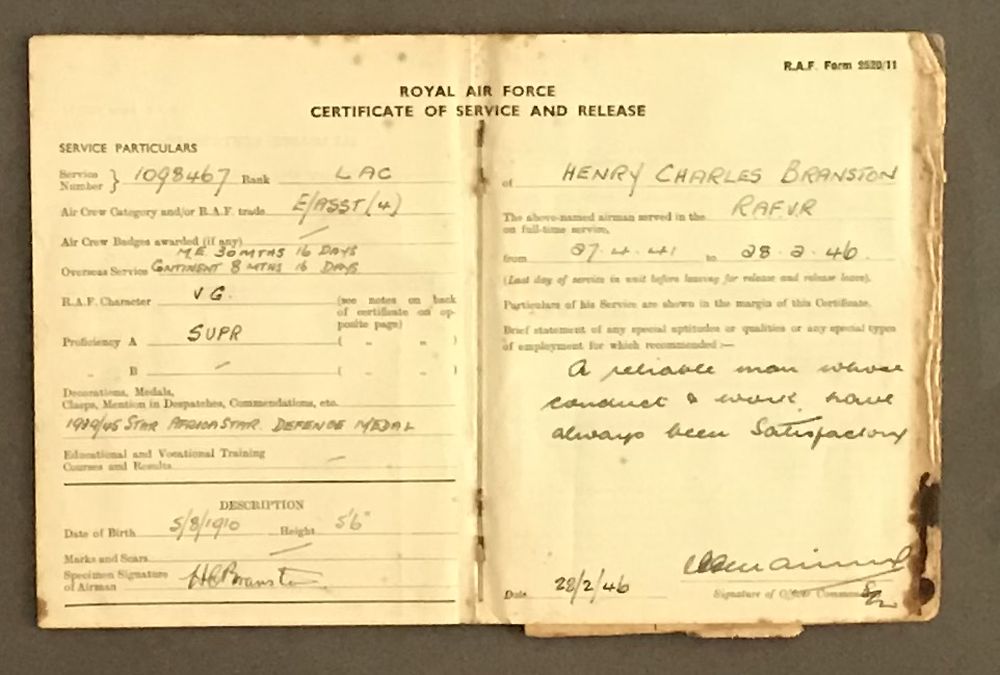 R.A.F. Form 2520/11
ROYAL AIR FORCE
CERTIFICATE OF SERVICE AND RELEASE
SERVICE PARTICULARS
Service Number } 1098467 Rank LAC
Air Crew Category and/or R.A.F. trade E/ASST (4)
Air Crew Badges awarded (if any) —
M.E. 30 MTHS 16 DAYS
Overseas Service CONTINENT 8 MTHS 16 DAYS
R.A.F. Character V G. (see notes on back
of certificate on op-
posite page)
Proficiency A SUPR ( „ „ )
„ B — ( „ „ )
Decorations, Medals,
Clasps, Mention in Despatches, Commendations, etc.
1939/45 STAR AFRICA STAR. DEFENCE MEDAL
Educational and Vocational Training
Courses and Results —
DESCRIPTION
Date of Birth 5/8/1910 Height 5'6"
Marks and Scars —
Specimen Signature
of Airman HC Branston
of HENRY CHARLES BRANSTON
The above-named airman served in the RAFVR
on full-time service,
from 27.4.41 to 28.2.46.
(Last day of service in unit before leaving for release and release leave).
Particulars of his Service are shown in the margin of this Certificate.
Brief statement of any special aptitudes or qualities or any special types
of employment for which recommended :—
A reliable man whose
conduct & work have
always been Satisfactory
Date 28/2/46 Signature of Officer